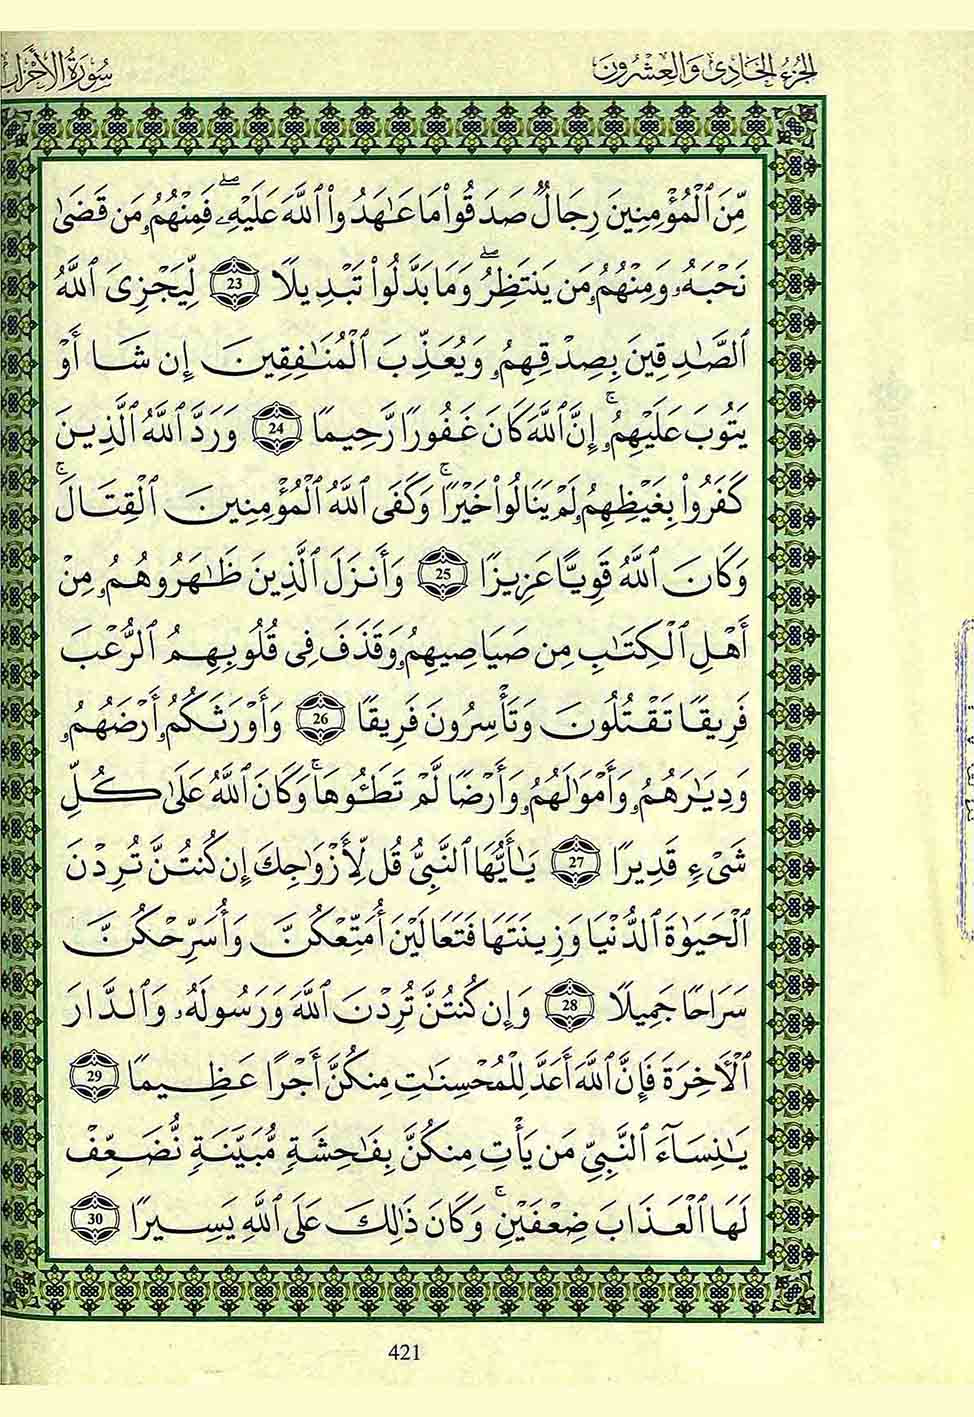 الجزء الحادي والعشرون
سورة الأحزاب
مِّنَ ٱلْمُؤْمِنِينَ رِجَالٌ صَدَقُوا۟ مَا عَـٰهَدُوا۟ ٱللَّهَ عَلَيْهِۦۖ فَمِنْهُمُۥ مَن قَضَىٰ
نَحْبَهُۥ وَمِنْهُمُۥ مَن يَنتَظِرُۖ وَمَا بَدَّلُوا۟ تَبْدِيلًا 23 لِّيَجْزِىَ ٱللَّهُ
ٱلصَّـٰدِقِينَ بِصِدْقِهِمُۥ وَيُعَذِّبَ ٱلْمُنَـٰفِقِينَ إِن شَا أَوْ
يَتُوبَ عَلَيْهِمُۥۚ إِنَّ ٱللَّهَ كَانَ غَفُورًا رَّحِيمًا 24 وَرَدَّ ٱللَّهُ ٱلَّذِينَ
كَفَرُوا۟ بِغَيْظِهِمُۥ لَمْ يَنَالُوا۟ خَيْرًاۚ وَكَفَى ٱللَّهُ ٱلْمُؤْمِنِينَ ٱلْقِتَالَۚ
وَكَانَ ٱللَّهُ قَوِيًّا عَزِيزًا 25 وَأَنزَلَ ٱلَّذِينَ ظَـٰهَرُوهُمُۥ مِنْ
أَهْلِ ٱلْكِتَـٰبِ مِن صَيَاصِيهِمُۥ وَقَذَفَ فِى قُلُوبِهِمُ ٱلرُّعْبَ
فَرِيقًا تَقْتُلُونَ وَتَأْسِرُونَ فَرِيقًا 26 وَأَوْرَثَكُمُۥ أَرْضَهُمُۥ
وَدِيَـٰرَهُمُۥ وَأَمْوَٰلَهُمُۥ وَأَرْضًا لَّمْ تَطَـُٔوهَاۚ وَكَانَ ٱللَّهُ عَلَىٰ كُلِّ
شَىْءٍ قَدِيرًا 27 يَـٰٓأَيُّهَا ٱلنَّبِىُّ قُل لِّأَزْوَٰجِكَ إِن كُنتُنَّ تُرِدْنَ
ٱلْحَيَوٰةَ ٱلدُّنْيَا وَزِينَتَهَا فَتَعَالَيْنَ أُمَتِّعْكُنَّ وَأُسَرِّحْكُنَّ
سَرَاحًا جَمِيلًا 28 وَإِن كُنتُنَّ تُرِدْنَ ٱللَّهَ وَرَسُولَهُۥ وَٱلدَّارَ
ٱلْأَخِرَةَ فَإِنَّ ٱللَّهَ أَعَدَّ لِلْمُحْسِنَـٰتِ مِنكُنَّ أَجْرًا عَظِيمًا 29
يَـٰنِسَآءَ ٱلنَّبِىِّ مَن يَأْتِ مِنكُنَّ بِفَـٰحِشَةٍ مُّبَيَّنَةٍ نُّضَعِّفْ
لَهَا ٱلْعَذَابَ ضِعْفَيْنِۚ وَكَانَ ذَٰلِكَ عَلَى ٱللَّهِ يَسِيرًا 30
421